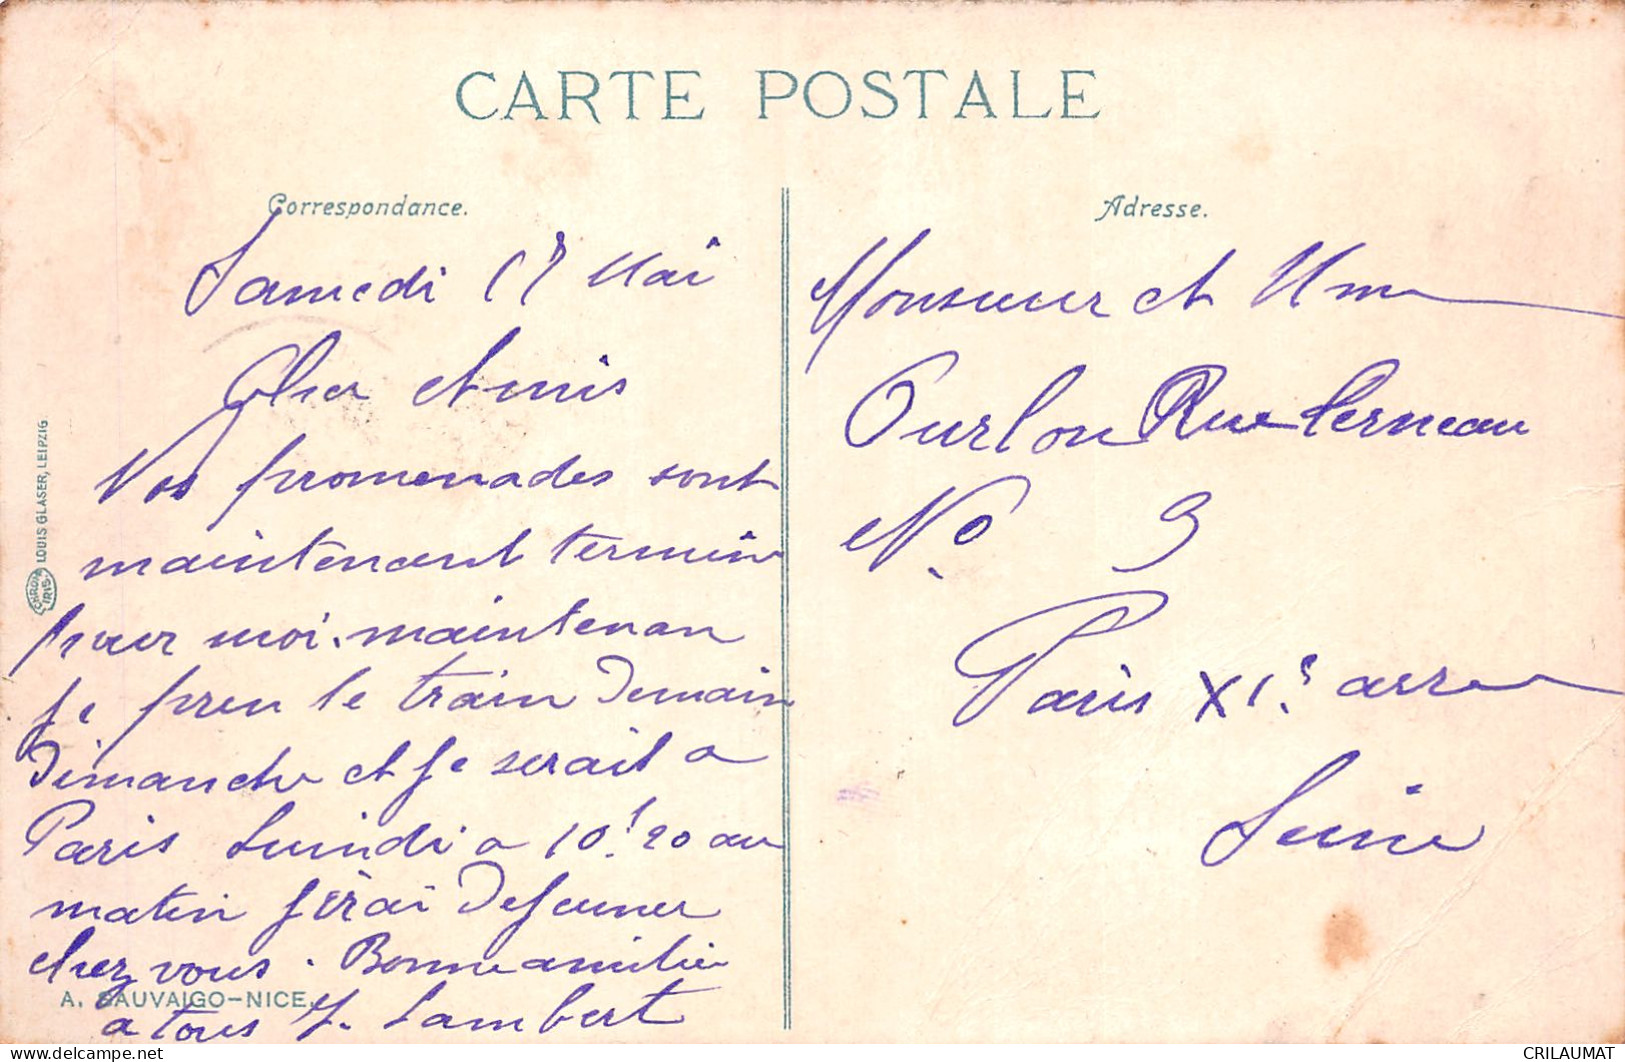 CARTE POSTALE
Correspondance.
Samedi 17 Mai
Cher Amis
Nos promenades sont
maintenant termin
pour moi. maintenan
je pren le train Demain
Dimanche et je serait a
Paris Luindi a 10h 20 au
matin j'irai Dejeuner
chez vous. Bonne amitie
a tous J. Lambert
A. SAUVAIGO-NICE.
LOUIS GLASER, LEIPZIG
CHROM IRIS
Adresse.
Monsieur et Mme
Ourlon Rue Cerneau
No. 9
Paris XIe. arr
Seine
CRILAUMAT